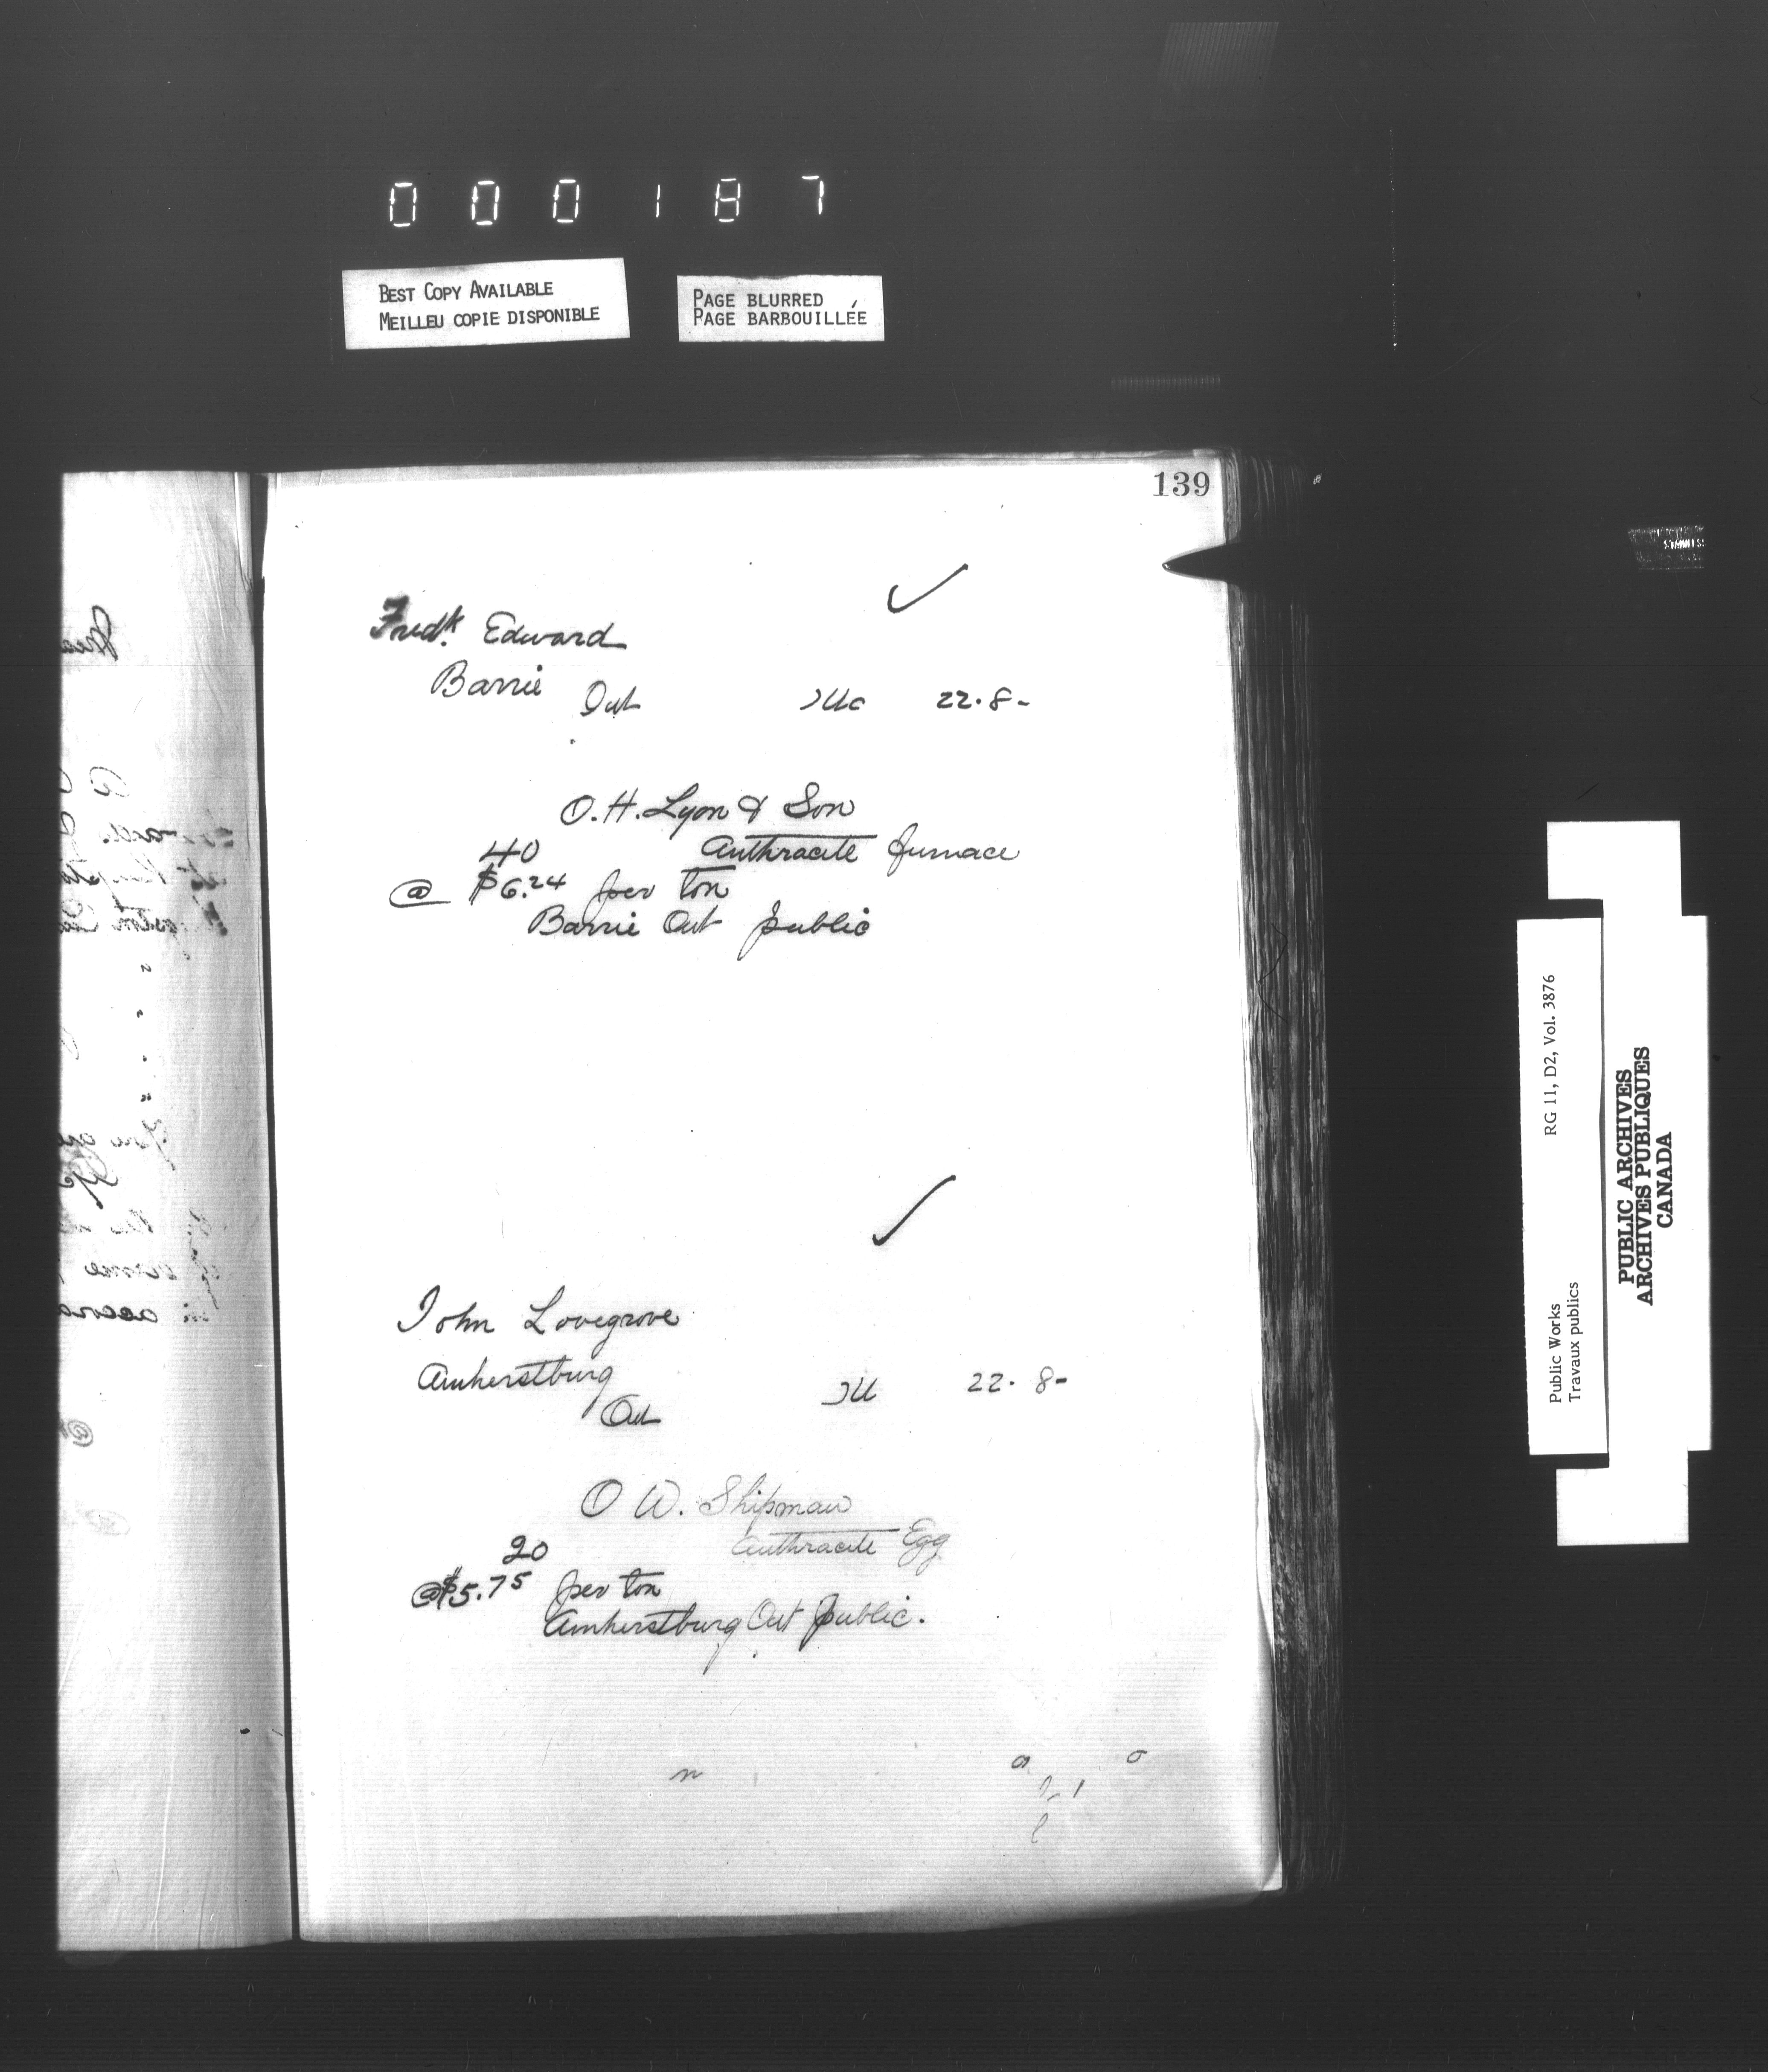 000187
BEST COPY AVAILABLE
MEILLEU COPIE DISPONIBLE
PAGE BLURRED
PAGE BARBOUILLÉE
139
Fredk. Edward
Barrie
Ont 22.8-
O. H. Lyon & Son
40 Anthracite furnace
@ $6.24 per ton
Barrie Ont public
John Lovegrove
Amherstburg
Ont 22. 8-
O W. Shipman
20 Anthracite Egg
@$5.75 per ton
Amherstburg Ont public.
Public Works
Travaux publics
RG 11, D2, Vol. 3876
PUBLIC ARCHIVES
ARCHIVES PUBLIQUES
CANADA